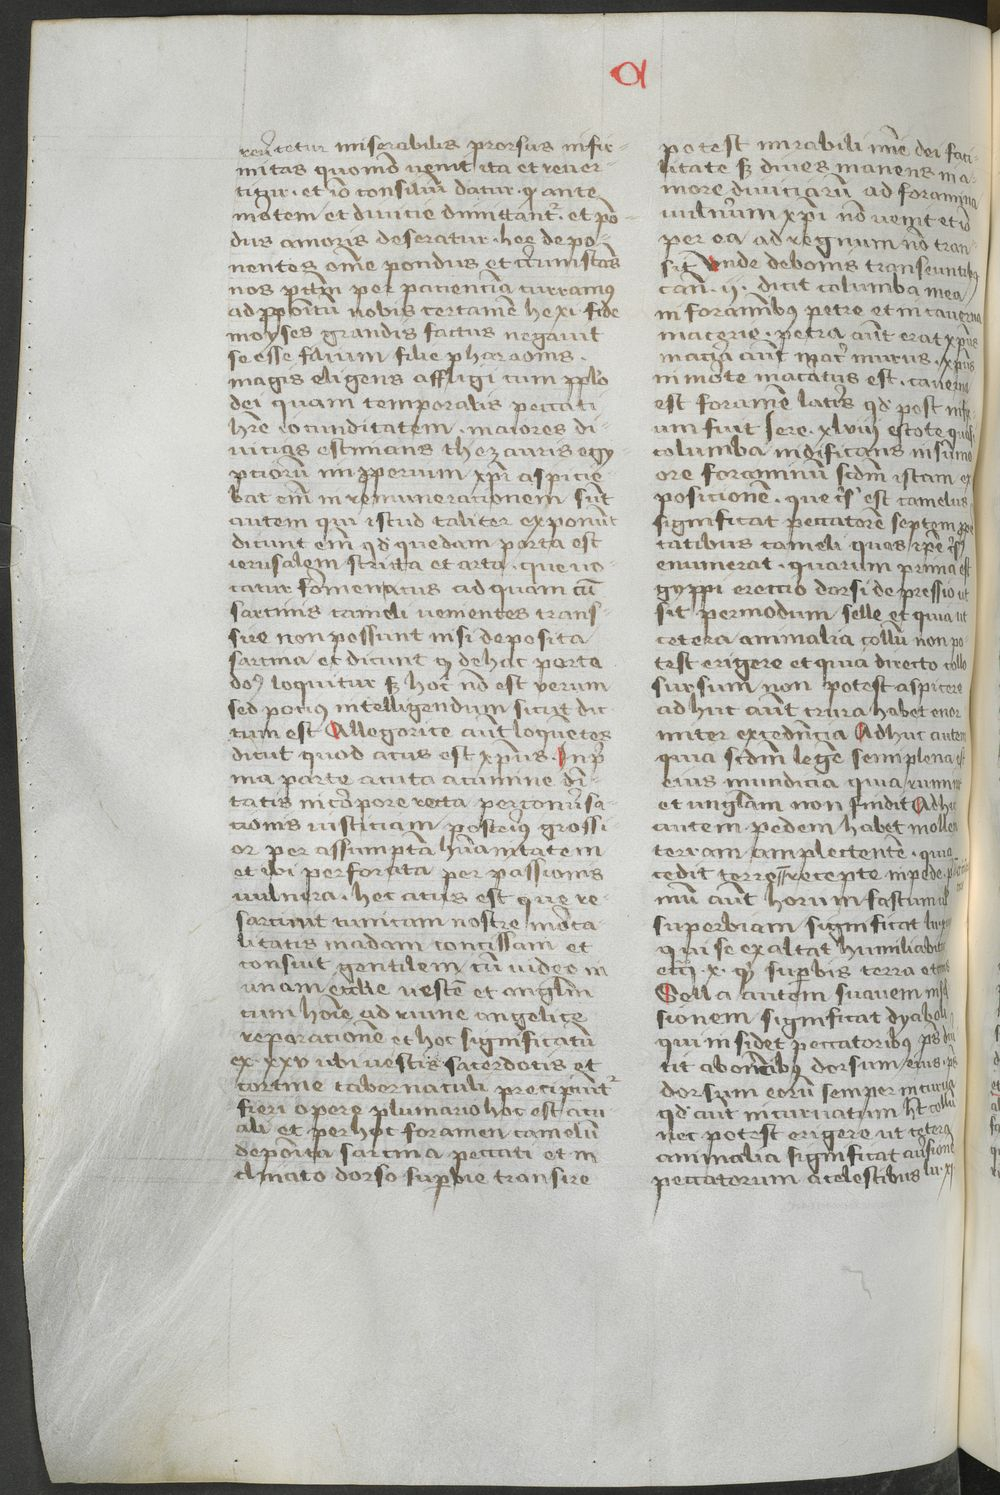 a
tetur miserabilis prorsus infir-
mitas quomō uenit ita et reuer-
titur · et iō consiliū datur · ꝙ ante
mōtem et diuicie dimittant᷑ · et pō-
dus amoris deseratur · hec depo-
nentes omē pondus et circūstās
nos pctm̄ per pacienciā curramus
ad ꝓpoitū nobis certamē he xi fide
moyses grandis factus negauit
se esse filium filie pharaonis ·
magis eligens affligi cum pplo
dei quam temporalis peccati
hr̄e iocunditatem · maiores di-
uicias estimans thezauris egy-
pciorū imꝓperium xp̄i aspicie-
bat em̄ in remuneracionem sūt
autem qui istud taliter exponūt
dicunt em̄ qd quedam porta est
ierusalem stricta et arta · que uo-
catur foramen acus ad quam cū
sarcinis cameli uenientes trans-
sire non possunt nisi deposita
sarcina et dicunt ꝙ de hac porta
loquitur sꝫ hoc nō est verum
sed pocius intelligendum sicut dic-
tum est Allegorice aūt loquētes
dicūt quod acus est xp̄us · In pri
ma parte acuta acumine diui-
tatis in corpore recta per conuersa-
cionis iusticiam posterius grossi-
or per assumptā hūanitatem
et ibi perforata per passionis
uulnera · hec acus est que re-
sarciuit tunicam nostre morta-
litatis iadam concissam et
consuit gentilem cū iudeo in
vnam ecclie uestē et anglm̄
cum hoīe ad ruine angelice
reparacionē et hoc significatū
ex · xxv ubi uestis sacerdotis et
cortine tabernaculi precipiunt᷑
fieri opere plumario hoc est acu-
ali et per hoc foramen camelū
deposita sarcina peccati et in
clinato dorso supbie transire
potest mirabili dei faci-
litate sꝫ diues manens in a-
more diuiciarū ad foramina
uulnerum xp̄i nō uenit et iō
per ea ad regnum nō tran-
sit Vnde de bonis transeuntibus
can̄ · ij · dicit columba mea
in foraminibꝰ petre et in cauerna
macerie · petra aūt erat xp̄us
maceria aūt murus · xp̄us
in mōte mactatus est · cauerna
est foramē lateris qd post
um fuit Iere · xlviij estote quasi
columba nidificans in sūmo
ore foraminū scdm̄ istam ex
posicionē · que est camelus
significat peccatorē septem ꝓprie
tatibus cameli quas
enumerat · quarum prima est
gyppi ereccio dorsi depressio ut
sit per modum selle et quia ut
cetera animalia collū non po-
test erigere et quia directo collo
sursum non potest aspicere
ad huc aūt crura habet enor
miter excedencia Ad huc autem
quia scdm̄ legē semiplena est
eius mundicia quia ruminat
et unglam non findit Ad huc
autem pedem habet mollem
terram amplectentē · quia
cedit terre recepte in pede
mū aūt horum fastum
superbiam significat
qui se exaltat humiliabitur
eccī · x · qd supbis terra et cinis
Sella autem suauem
sionem significat dyaboli
qui insidet peccatoribꝰ
dorsum eius · ps
dorsum eorū semper incurua
qd aūt incuruatum hꝫ collū
nec potest erigere ut cetera
animalia significat auersionē
peccatorum a celestibus lu · xi